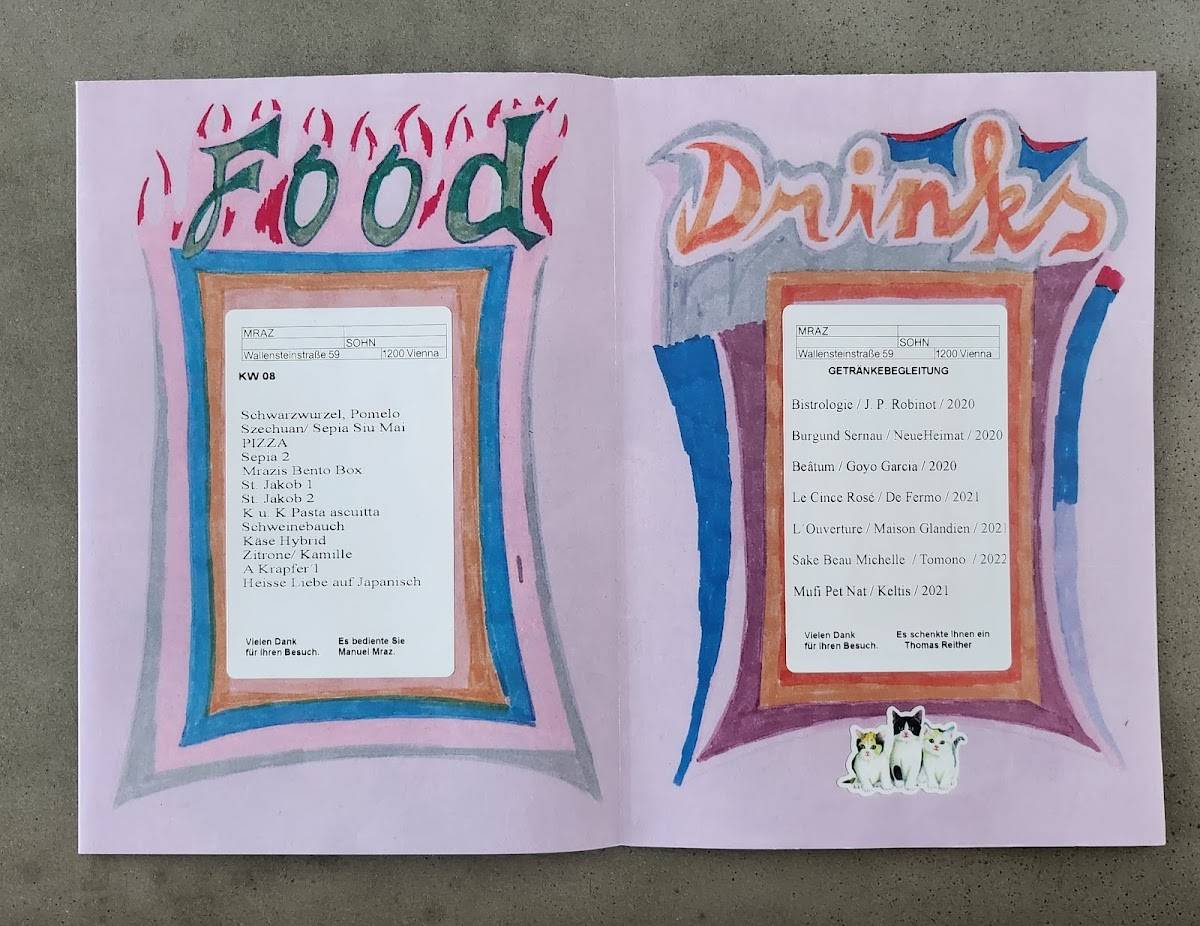 Food
MRAZ
SOHN
Wallensteinstraße 59 1200 Vienna
KW 08
Schwarzwurzel, Pomelo
Szechuan/ Sepia Siu Mai
PIZZA
Sepia 2
Mrazis Bento Box
St. Jakob 1
St. Jakob 2
K u. K Pasta ascuitta
Schweinebauch
Käse Hybrid
Zitrone/ Kamille
A Krapfer´l
Heisse Liebe auf Japanisch
Vielen Dank Es bediente Sie
für Ihren Besuch. Manuel Mraz.
Drinks
MRAZ
SOHN
Wallensteinstraße 59 1200 Vienna
GETRÄNKEBEGLEITUNG
Bistrologie / J. P. Robinot / 2020
Burgund Sernau / NeueHeimat / 2020
Beâtum / Goyo Garcia / 2020
Le Cince Rosé / De Fermo / 2021
L´Ouverture / Maison Glandien / 2021
Sake Beau Michelle / Tomono / 2022
Mufi Pet Nat / Keltis / 2021
Vielen Dank Es schenkte Ihnen ein
für Ihren Besuch. Thomas Reither